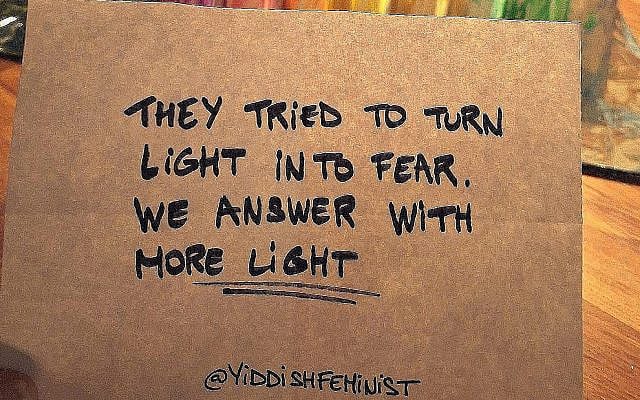 THEY TRiED TO TURN
LiGHT INTO FEAR.
WE ANSWER WiTH
MORE LiGHT
@YiDDiSHFEMiNiST